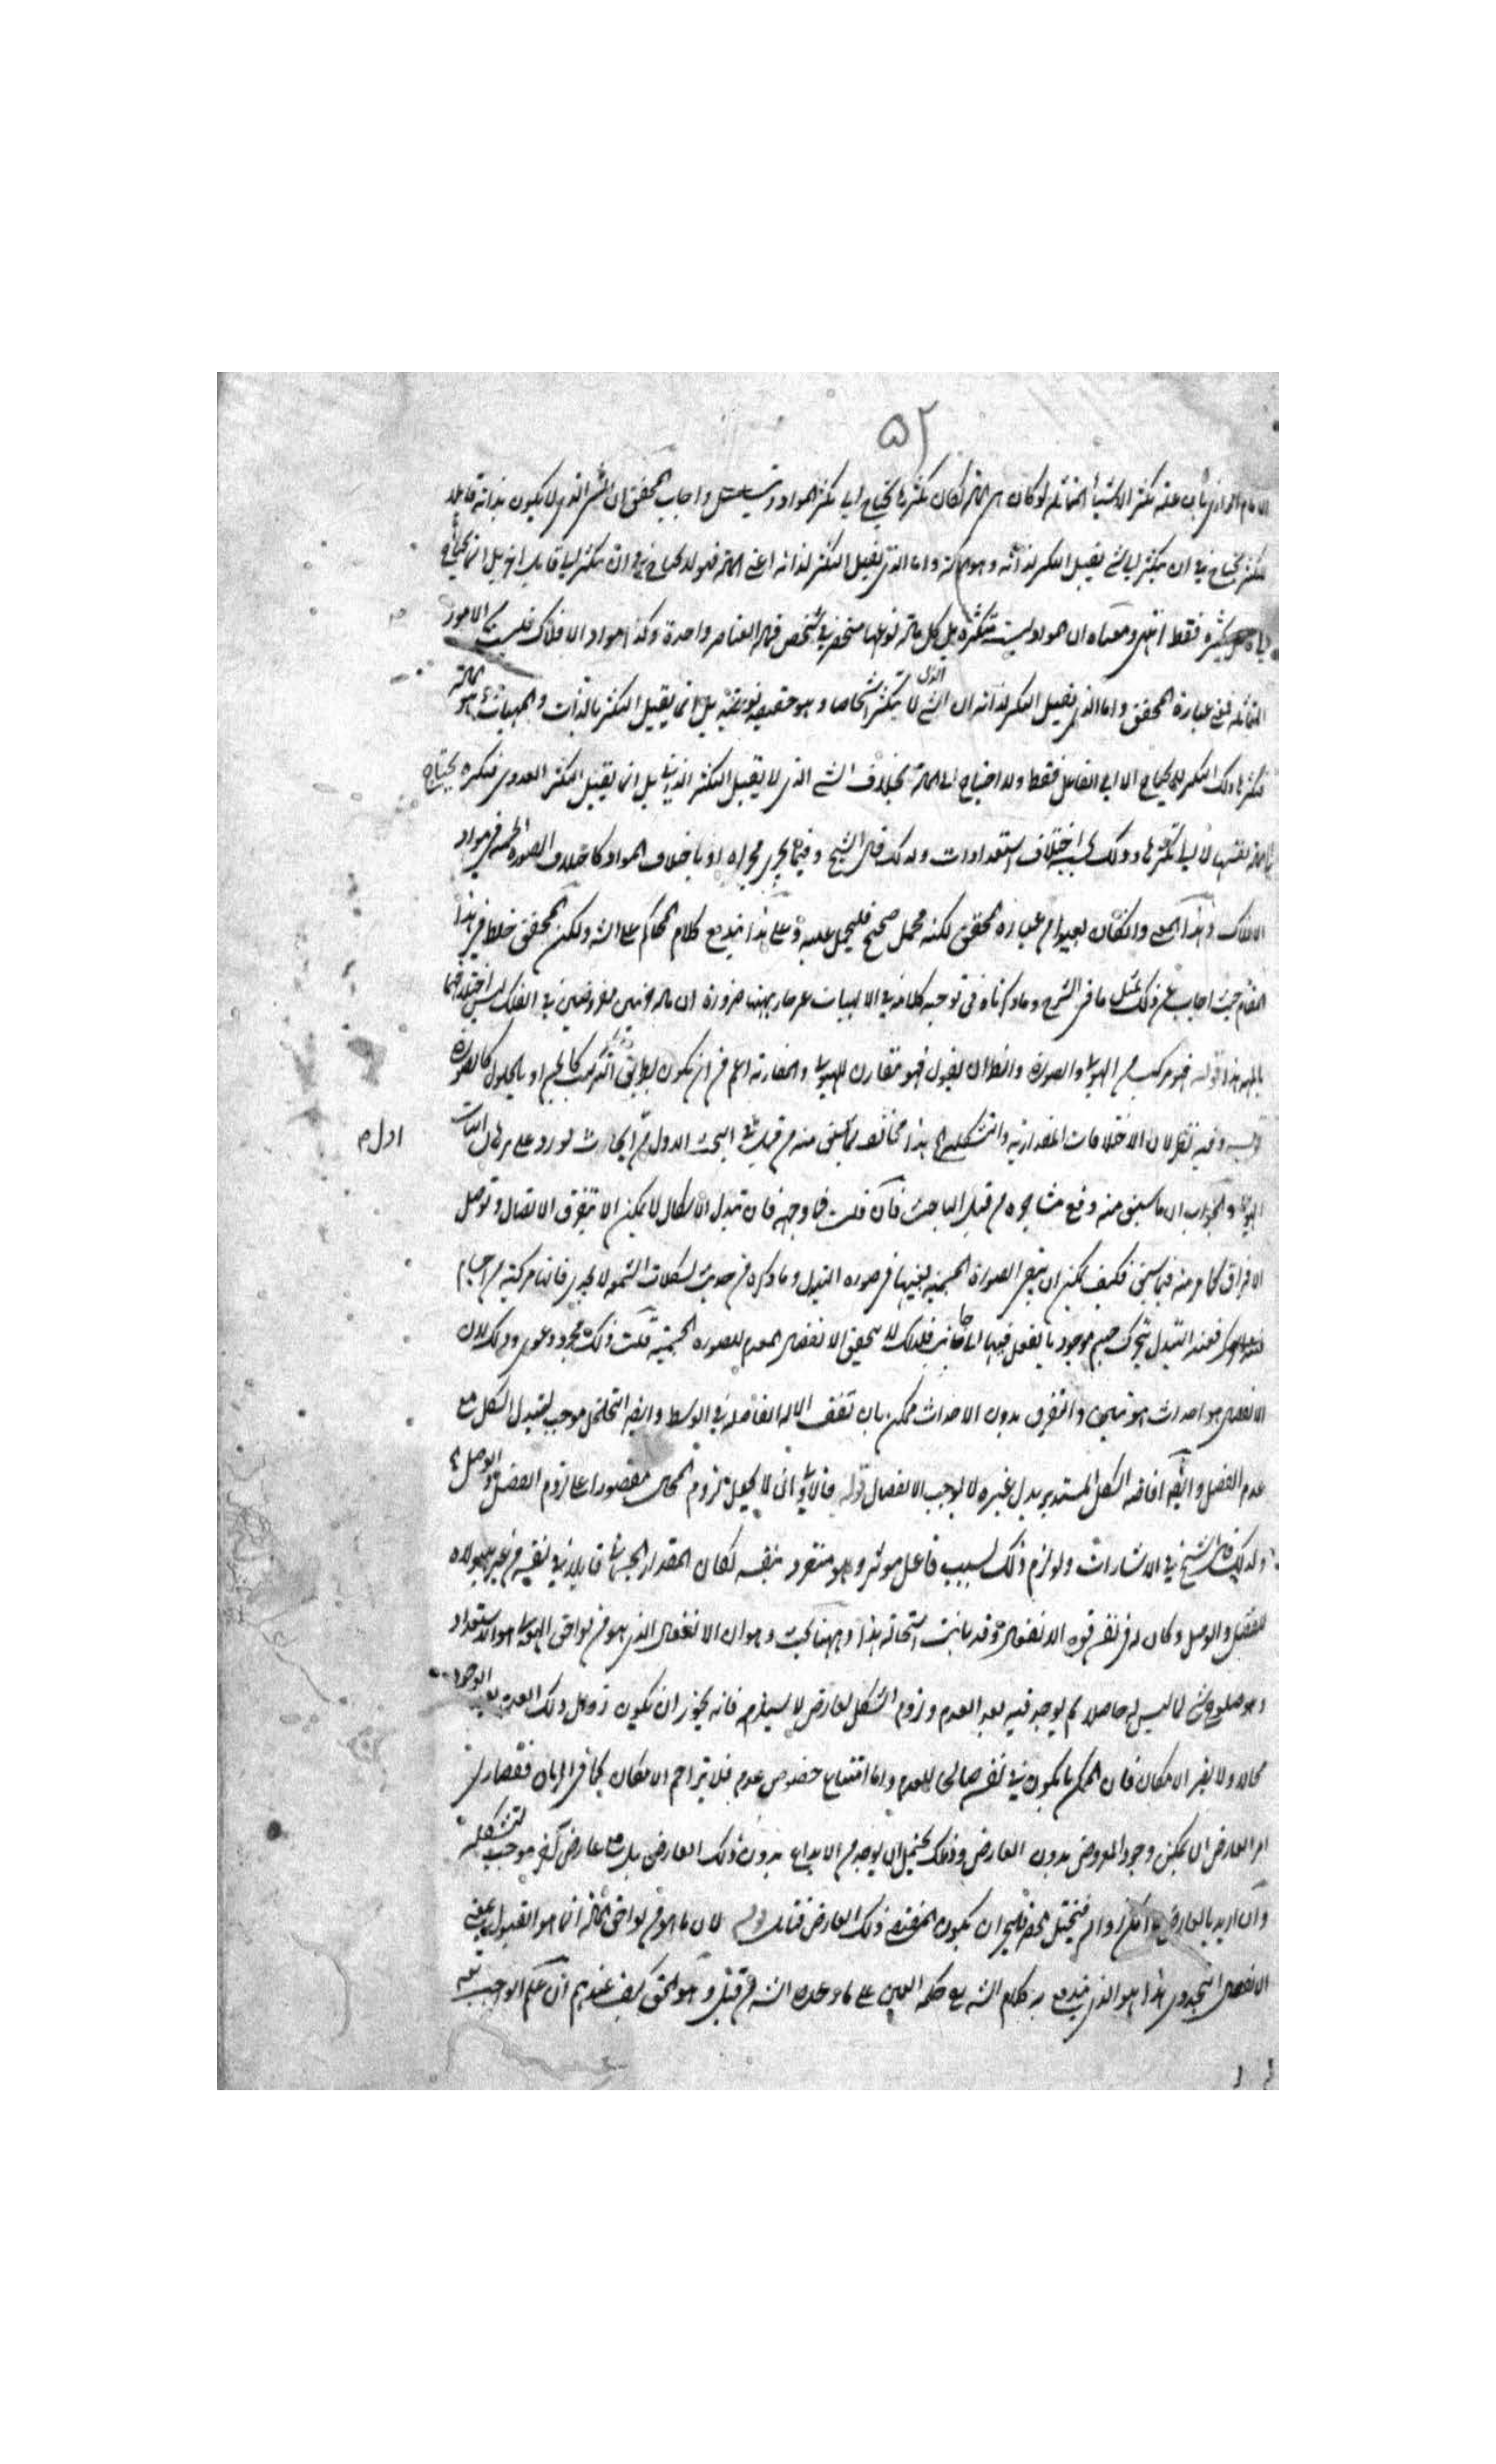 ٥٢
الامام الرازى بأن علة تكثر الاشياء المتماثلة لو كان هى المادة لكان تكثرها يحتاج الى تكثر المواد ويتسلسل واجاب المحقق ان الشئ الذى لا يكون بذاته قابلا
للتكثر يحتاج فى ان يتكثر الى شئ يقبل التكثر لذاته وهو المادة واما الذى يقبل التكثر لذاته اعنى المادة فهو لا يحتاج فى ان يتكثر الى قابل اخر بل انما يحتاج
الى فاعل يكثره فقط انتهى ومعناه ان المواد ليست متكثرة بل كل مادة نوعها منحصر فى شخص فمادة العناصر واحدة وكذا مواد الافلاك فليست من الامور
المتماثلة فمعنى عبارة المحقق واما الذى يقبل التكثر لذاته ان الشئ الذى لا يتكثر اشخاصا وهو حقيقة نوعية بل انما يقبل التكثر بالذات والجهات هو المادة
فتكثرها وذلك التكثر لا يحتاج الا الى الفاعل فقط ولا احتياج الى المادة بخلاف الشئ الذى لا يقبل التكثر الذاتى بل انما يقبل التكثر العددى فتكثره يحتاج
الى المادة نفسها لا الى تكثرها وذلك بحسب اختلاف استعدادات ولذلك قال الشيخ وفيما يجرى مجراه او باختلاف المواد كاختلاف الصورة الجسمية فى مواد
الافلاك وهذا المعنى وان كان بعيدا من عبارة المحقق لكنه محمل صحيح فليحمل عليه وعلى هذا يندفع كلام المحاكم على الشارح ولكن المحقق خلط فى هذا
المقام حيث اجاب عن ذلك بمثل ما فى الشرح وما ذكرناه فى توجيه كلامه فى الالهيات غير جار ههنا ضرورة ان مادة جزئين مفروضين فى الفلك ليس اختلافهما
بالمهية هذا قوله فهو مركب من الهيولى والصورة وانما ان يقول فهو مقارن للهيولى والمقارنة اعم من ان يكون بطريق التركيب كالجسم او بالحلول كالصورة
قوله وفيه نظر لان الاختلافات المقدارية والتشكلية هذا مخالف لما سبق منه من قبل فى البحث الاول من ابحاث تورد على برهان اثبات
اول م
الهيولى والجواب ان ما سبق منه وقع مماشاة من قبل الباحث فان قلت فما وجهه فان تبدل الاشكال لا يمكن الا بتفرق الاتصال وتوصل
الافراق كما مر منه فيما سبق فكيف يمكن ان يبقى الصورة الجسمية بعينها فى صورة التبدل وما ذكره من حديث تشكلات الشمعة لا يجدى فانها مركبة من اجسام
فعند التبدل يتحرك جسم موجود بالفعل فيها الى جانب فلذلك لا يتحقق الانفصال المعدم للصورة الجسمية قلت ذلك مجرد دعوى وذلك لان
الانفصال هو احداث هويتين والتفرق بدون الاحداث ممكن بان تقف الالة الفاصلة فى الوسط وايضا التخلخل موجب لتبدل الشكل مع
عدم الفصل وايضا افاضة الشكل المستدير بدل غيره لا يوجب الانفصال قوله فالاولى انى لا يجعل لزوم المحال مقصورا على لزوم الفصل والوصل
ولذلك قال الشيخ فى الاشارات ولو لزم ذلك بسبب فاعل موثر وهو منفرد بنفسه لكان المقدار الجسمانى قابلا فى نفسه من غير هيولاه
للفصل والوصل وكان له فى نفسه قوة الانفعال وقد بانت استحالة هذا وههنا بحث وهو ان الانفعال الذى هو من لواحق الهيولى هو الاستعداد
وهو صلوح شئ لما ليس له حاصلا ثم يوجد فيه بعد العدم ولزوم الشكل لعارض لا يستلزمه فانه يجوز ان يكون زوال ذلك العدم بعد الوجود
محالا ولا يضر الامكان فان الممكن ما يكون فى نفسه صالحا للعدم واما امتناع خصوص عدم فلا يزاحم الامكان كما فى الزمان فقصارى
امر العارض ان يمكن وجود المعروض بدون العارض وذلك يحتمل ان يوجد من الابداع بدون ذلك العارض بل مع عارض آخر موجب لتشكله
وان اريد بالعارض ما امكن زواله فيختل الحصر فليجز ان يكون المقتضى ذلك العارض فتأمل قوله لان ما هو من لواحق المادة انما هو القبول بمعنى
الانفعال التجددى هذا هو الذى يندفع به كلام الشارح مع حكمة العين على ما وعده الشارح من قبل وهو الحق كيف عندهم ان علم الواجب نفسه